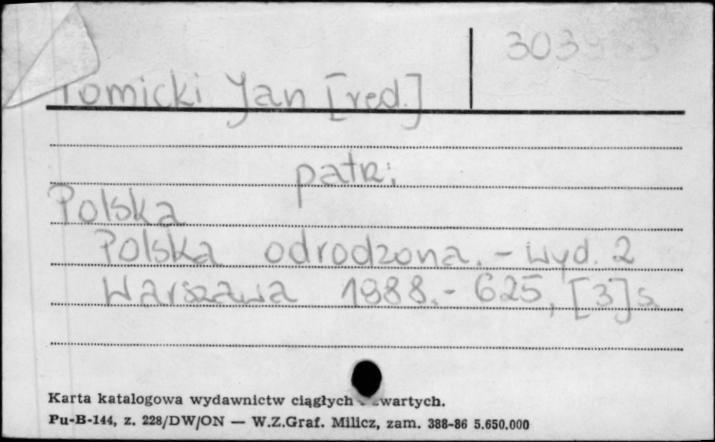 303
Tomicki Jan [red.]
patrz:
Polska
Polska odrodzona. - Wyd. 2
Warszawa 1988. - 625, [3] s.
Karta katalogowa wydawnictw ciągłych
Pu-B-144, z. 228/DW/ON — W.Z.Graf. Milicz, zam. 388-86 5.650.000